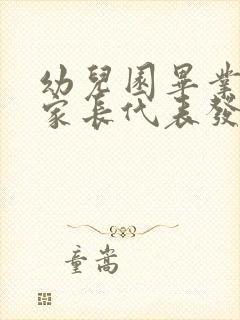 幼兒園畢業
家長代表發
童嵩